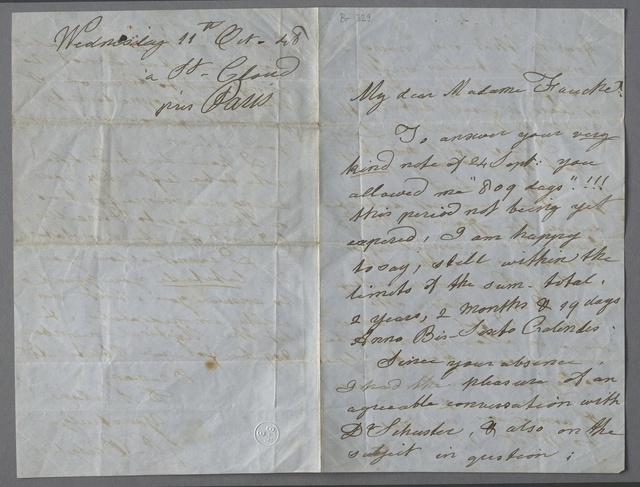 Wednesday 11th Oct - 48
a St - Cloud
près Paris
Br 329
My dear Madame Fauché.
To answer your very
kind note of 24 Sept: you
allowed me "809 days"!!!
this period not being yet
expired, I am happy
to say, still within the
limits of the sum-total.
2 years, 2 months & 19 days
Anno Bis-Sexto Calendis.
Since your absence
I had the pleasure of an
agreeable conversation with
Dr Schuster, & also on the
subject in question;